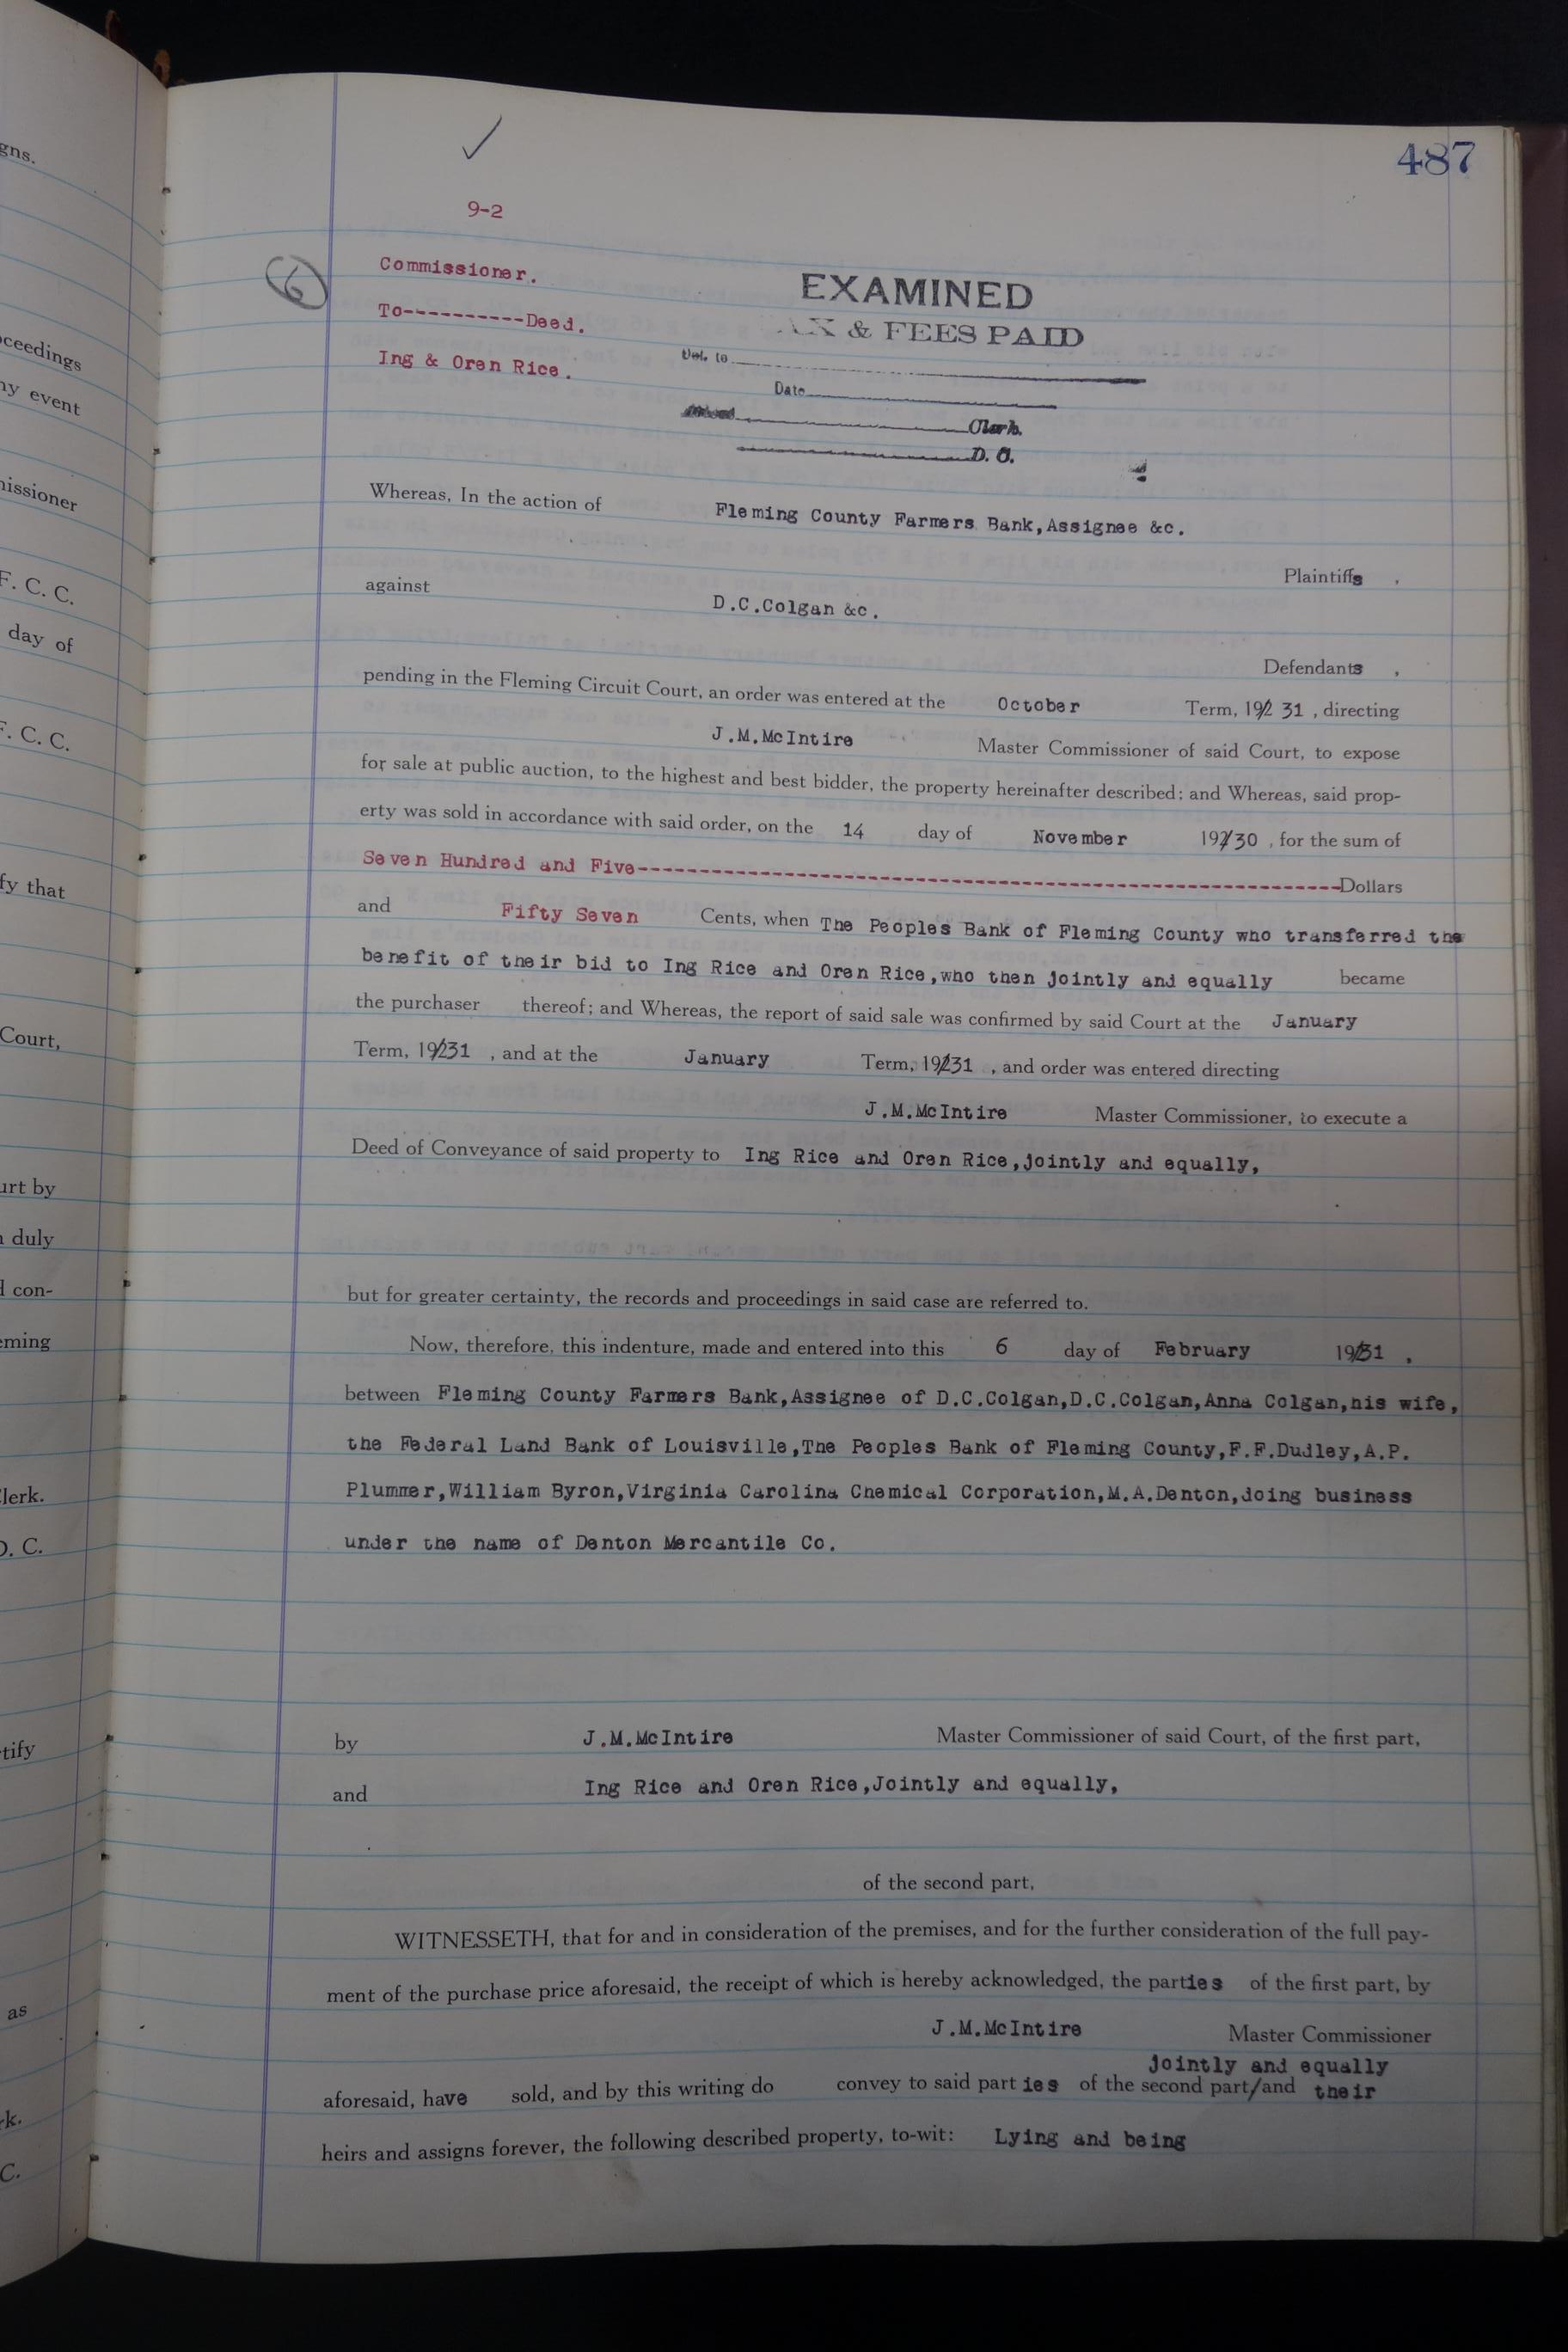 gns.
oceedings
ny event
missioner
F. C. C.
day of
F. C. C.
fy that
Court,
urt by
duly
d con-
eming
Clerk.
D. C.
tify
as
rk.
C.
487
9-2
6
Commissioner.
To----------Deed.
Ing & Oren Rice.
EXAMINED
AX & FEES PAID
Del. to
Date
Clerk.
D. C.
Whereas, In the action of Fleming County Farmers Bank,Assignee &c.
Plaintiffs ,
against D.C.Colgan &c.
Defendants ,
pending in the Fleming Circuit Court, an order was entered at the October Term, 192 31 , directing
J.M.McIntire Master Commissioner of said Court, to expose
for sale at public auction, to the highest and best bidder, the property hereinafter described; and Whereas, said prop-
erty was sold in accordance with said order, on the 14 day of November 192/30 , for the sum of
Seven Hundred and Five----------------------------------------------------------------------Dollars
and Fifty Seven Cents, when The Peoples Bank of Fleming County who transferred the
benefit of their bid to Ing Rice and Oren Rice,who then jointly and equally became
the purchaser thereof; and Whereas, the report of said sale was confirmed by said Court at the January
Term, 192/31 , and at the January Term, 192/31 , and order was entered directing
J.M.McIntire Master Commissioner, to execute a
Deed of Conveyance of said property to Ing Rice and Oren Rice,jointly and equally,
but for greater certainty, the records and proceedings in said case are referred to.
Now, therefore, this indenture, made and entered into this 6 day of February 192/31 ,
between Fleming County Farmers Bank,Assignee of D.C.Colgan,D.C.Colgan,Anna Colgan,his wife,
the Federal Land Bank of Louisville,The Peoples Bank of Fleming County,F.F.Dudley,A.P.
Plummer,William Byron,Virginia Carolina Chemical Corporation,M.A.Denton,doing business
under the name of Denton Mercantile Co.
by J.M.McIntire Master Commissioner of said Court, of the first part,
and Ing Rice and Oren Rice,Jointly and equally,
of the second part,
WITNESSETH, that for and in consideration of the premises, and for the further consideration of the full pay-
ment of the purchase price aforesaid, the receipt of which is hereby acknowledged, the parties of the first part, by
J.M.McIntire Master Commissioner
jointly and equally
aforesaid, have sold, and by this writing do convey to said part ies of the second part/and their
heirs and assigns forever, the following described property, to-wit: Lying and being